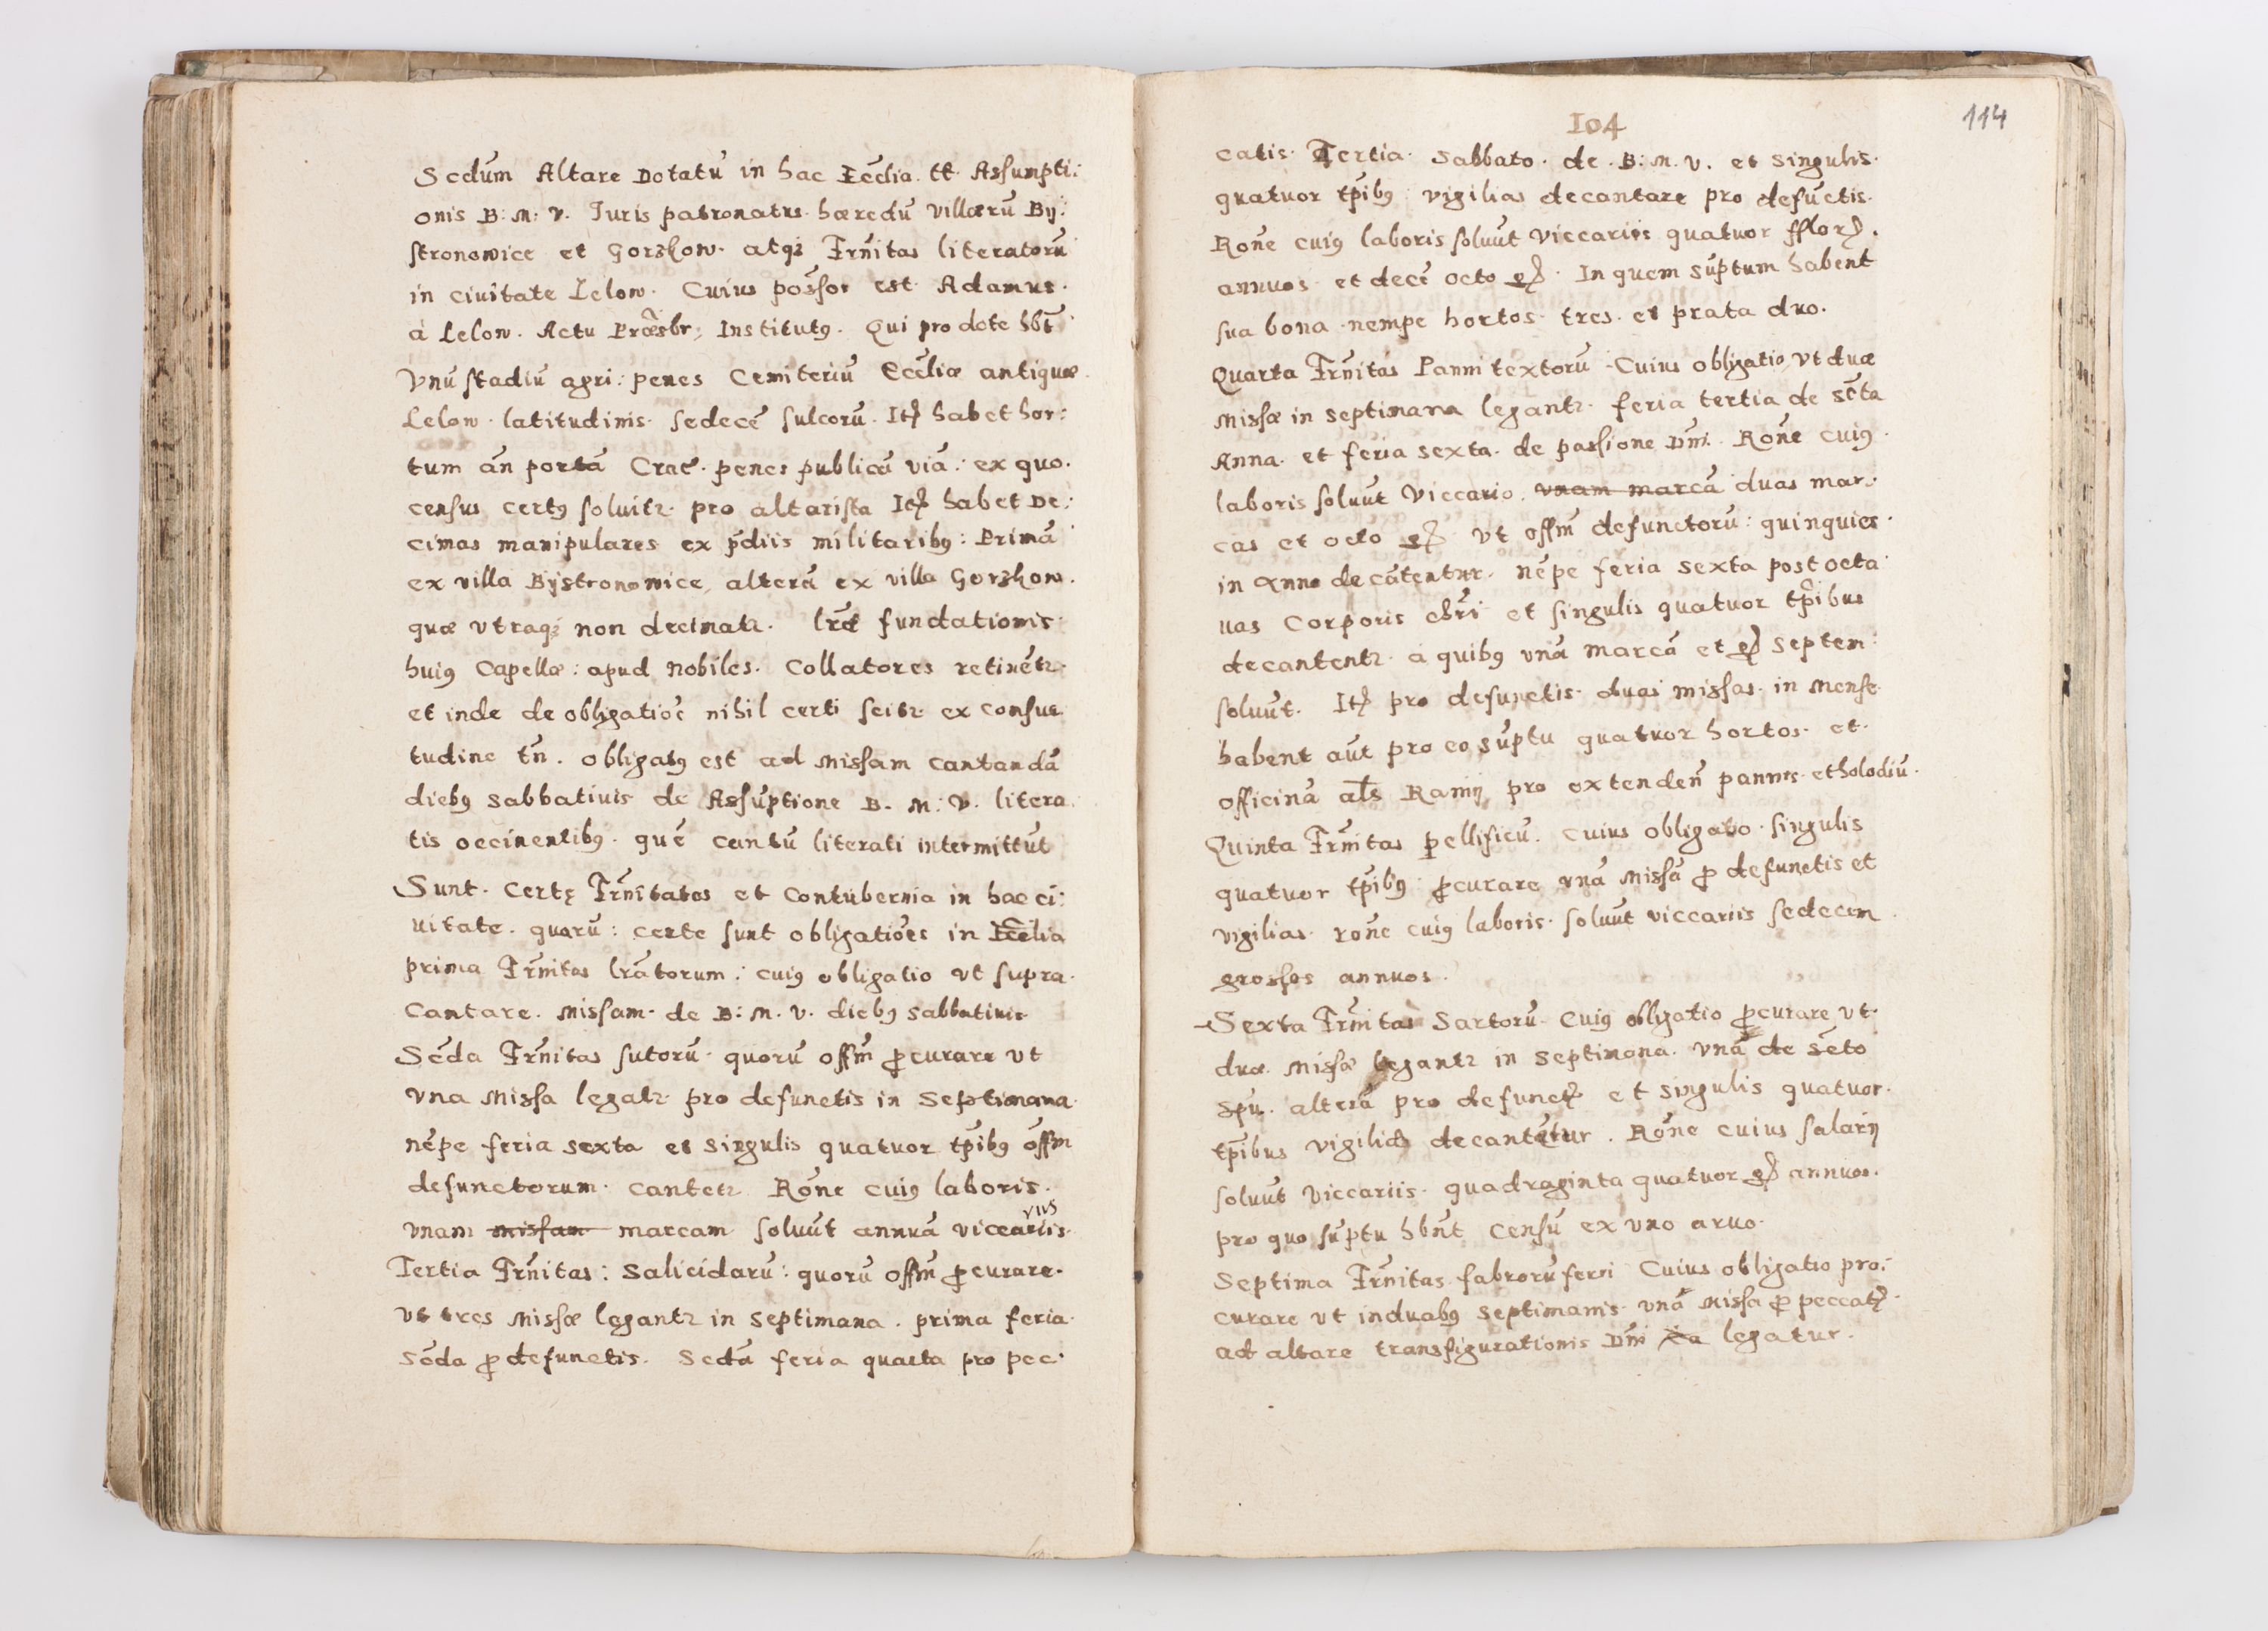 Scdūm Altare Dotatū in hac Eccłia. tt. Assumpti:
onis B: M: V. Juris patronatus hæredū villarū Bij:
stronowice et Gorzkow. atq₃ Frn̄itas literatorū
in ciuitate Lelow. Cuius pos̄sor est Adamus.
à Lelow. Actu Præsbr; Institutꝯ. Qui pro dote hb̄t
Vnū stadiū agri: penes Cemiteriū Eccliæ antiquæ
Lelow. latitudinis. sedecē sulcorū. Itꝫ habet hor:
tum ān portā Crac̄. penes publicā viā: ex quo.
census certꝯ soluitꝛ. pro altarista Itꝫ habet De:
cimas manipulares ex p̄diis militaribꝯ: Primā
ex villa Bijstronowice, alterā ex villa Gorzkow.
quæ vtraqꝫ non decimatꝛ. Lr̄æ fundationis.
huiꝯ Capellæ: apud Nobiles. Collatores retinētꝛ.
et inde de obligatioē nihil certi scitꝛ ex consue
tudine tn̄. obligatꝯ est ad Missam cantandā
diebꝯ sabbatiuis de Assūptione B. M: V. litera
tis occinentibꝯ. quē cantū literati intermittūt
Sunt. Certę Frn̄itates et Contubernia in hac ci:
uitate. quarū: certe sunt obligatiōes in Ecc̄lia
prima Frn̄itas lrātorum: cuiꝯ obligatio vt supra.
Cantare. Missam. de B: M. V. diebꝯ sabbatiuis
Scd̄a Frn̄itas sutorū. quorū offm̄ ꝓcurare vt
vna Missa legatꝛ pro defunctis in Septimana.
nēpe feria sexta et singulis quatuor tp̄ibꝯ offm̄
defunctorum. cantetꝛ Rōne cuiꝯ laboris.
vnam missam marcam soluūt annuā viccariis. viis
Tertia Frn̄itas: Salicidarū: quorū offm̄ ꝓcurare.
vt tres Missæ legantꝛ in septimana. prima feria.
scd̄a ꝓ defunctis. Scdā feria quarta pro pec:
104
114
catis. Tertia. Sabbato. de. B: M. V. et singulis.
quatuor tp̄ibꝯ vigilias decantare pro defūctis.
Rōne cuiꝯ laboris soluūt viccariis quatuor fflorꝫ.
annuos. et decē octo gꝫ. In quem sūptum habent
sua bona. nempe hortos. tres. et prata duo.
Quarta Frn̄itas Panni textorū. Cuius obligatio, vt duæ
Missæ in septimana legantꝛ. feria tertia de Sc̄ta
Anna. et feria sexta. de passione Dn̄i. Rōne cuiꝯ.
laboris soluūt Viccario. vnam marcā duas mar:
cas et octo gꝫ. vt offm̄ defunctorū: quinquies.
in anno decātentur. nēpe feria sexta post octa
uas Corporis chrī et singulis quatuor tp̄ibus
decantentꝛ. a quibꝯ vnā marcā et gꝫ septem:
soluūt. Itꝫ pro defunctis. duas missas. in mense.
habent aūt pro eo sūptu quatuor hortos. et.
officinā al̄s Ramÿ pro extendeñ pannis. et holodiū.
Quinta Frn̄itas pellificū. cuius obligatio. singulis
quatuor tp̄ibꝯ ꝓcurare vnā Missā ꝓ defunctis et
vigilias. rōne cuiꝯ laboris. soluūt viccariis sedecim
grosses annuos.
Sexta Frn̄itas Sartorū. Cuiꝯ obligatio ꝓcurare vt.
duæ. Missæ legantꝛ in septimana. vnā de Sc̄to
Spū. alterā pro defunctꝫ et singulis quatuor.
tp̄ibus vigilias decantētur. Rōne cuius salarÿ
soluūt Viccariis. quadraginta quatuor gꝫ annuos.
pro quo sūptu hbn̄t censū ex vno aruo.
Septima Frn̄itas fabrorū ferri Cuius obligatio pro:
curare vt in duabꝯ septimanis. vnā Missa ꝓ peccatꝫ.
ad altare transfigurationis Dn̄i legatur.